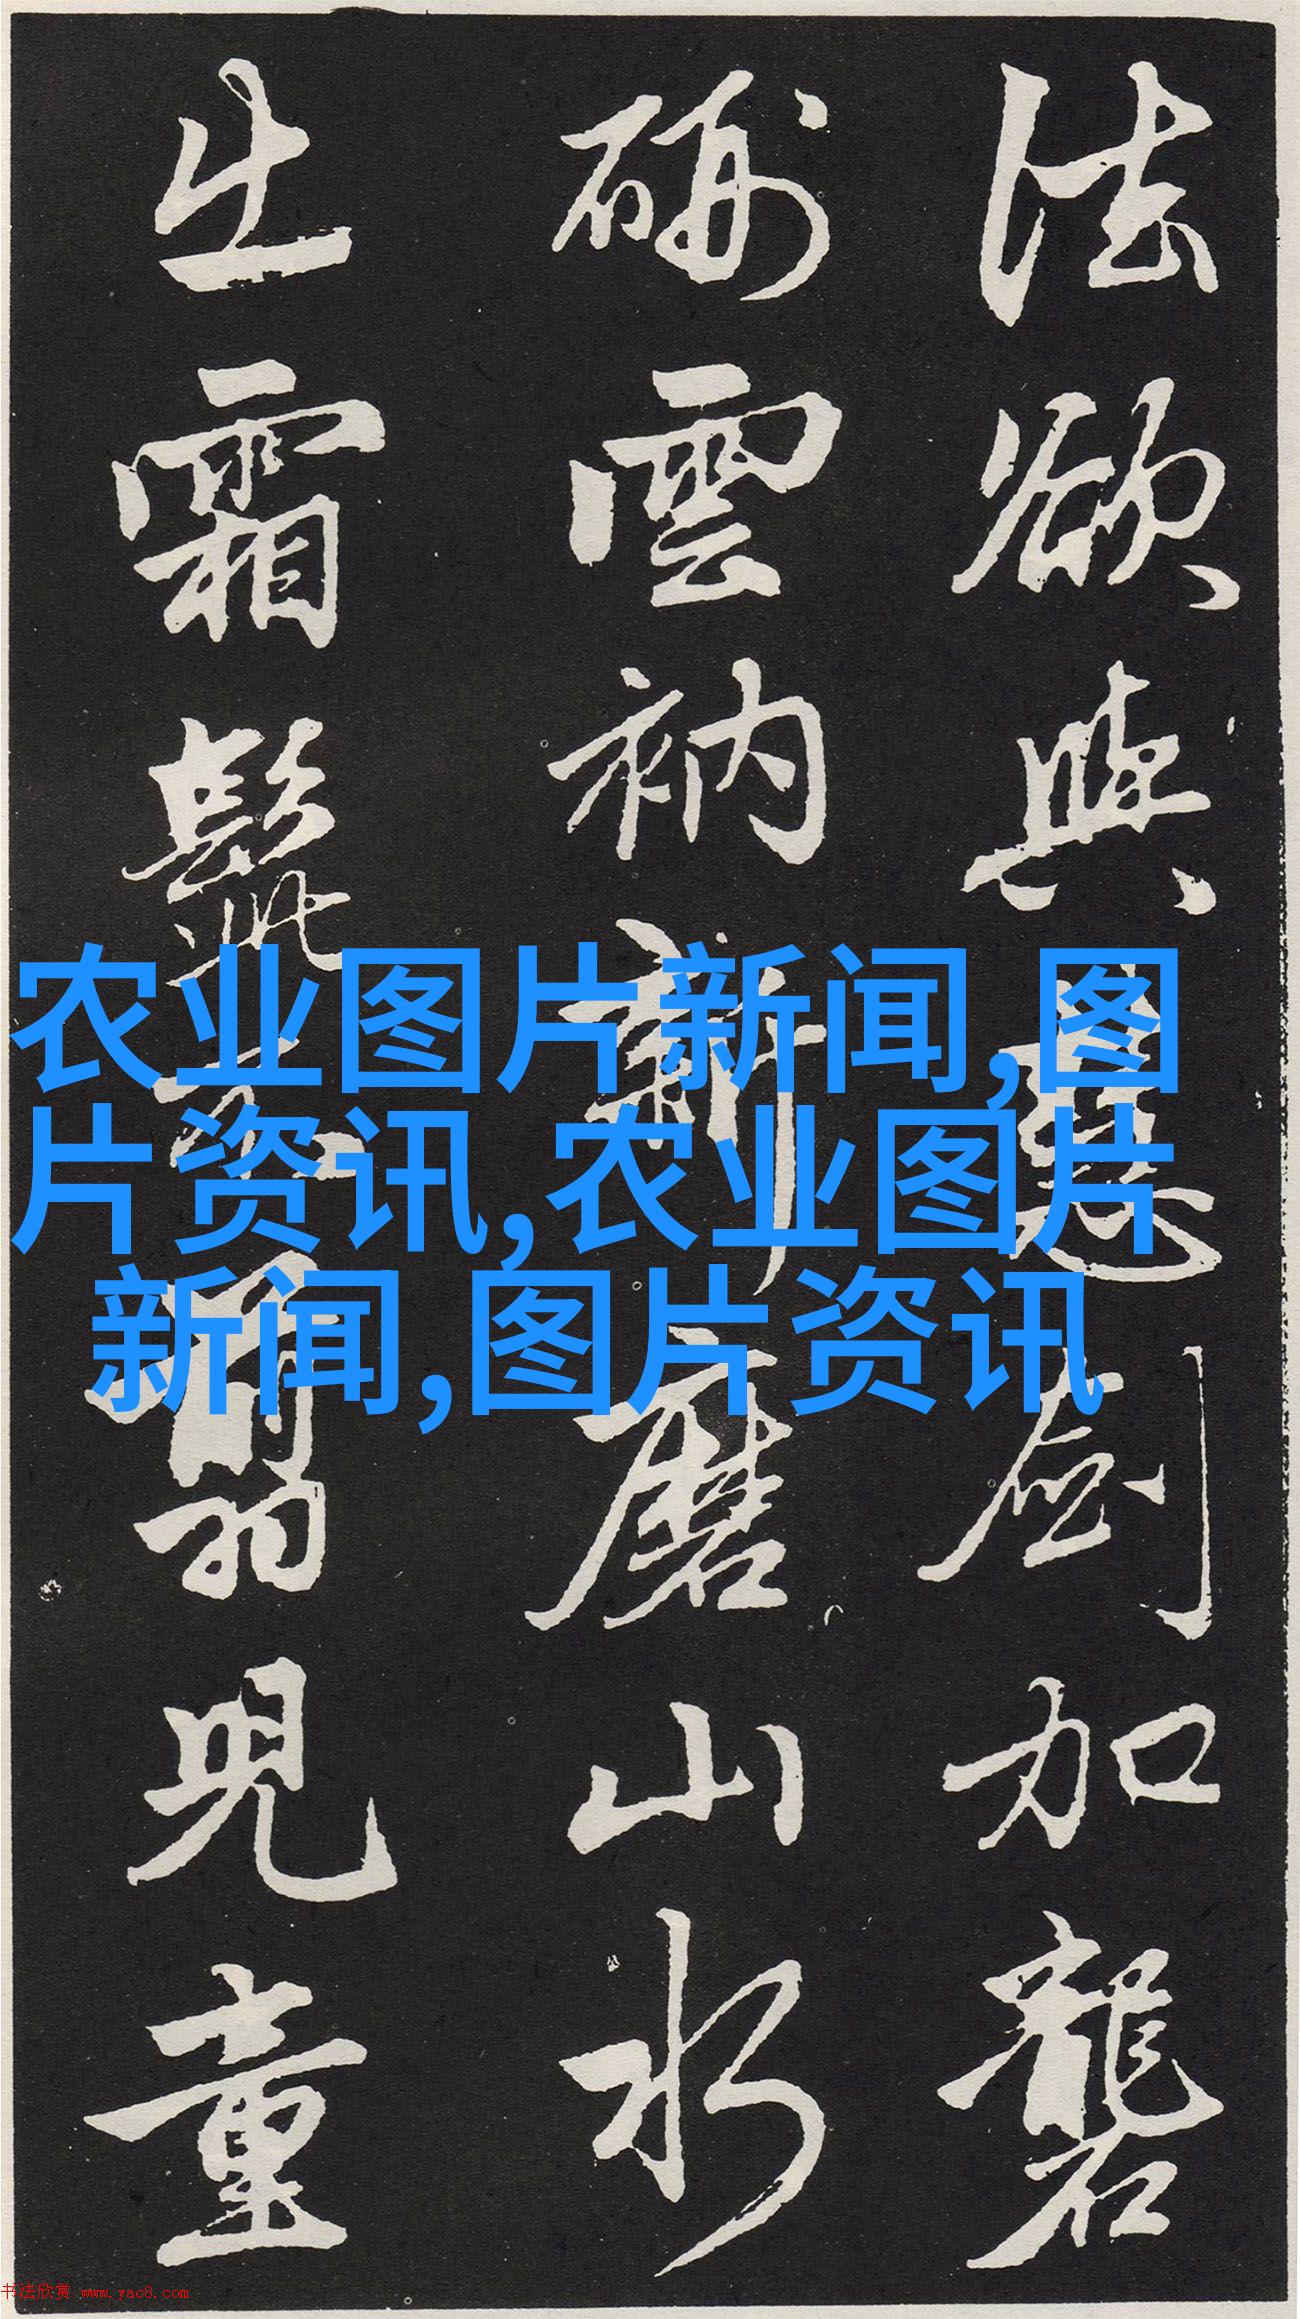 法欲與慧劍加礱
硎雲衲新磨山水
出霜髭不翦兒童
农业图片新闻,图
片资讯,农业图片
新闻,图片资讯
书法欣赏 www.yac8.com